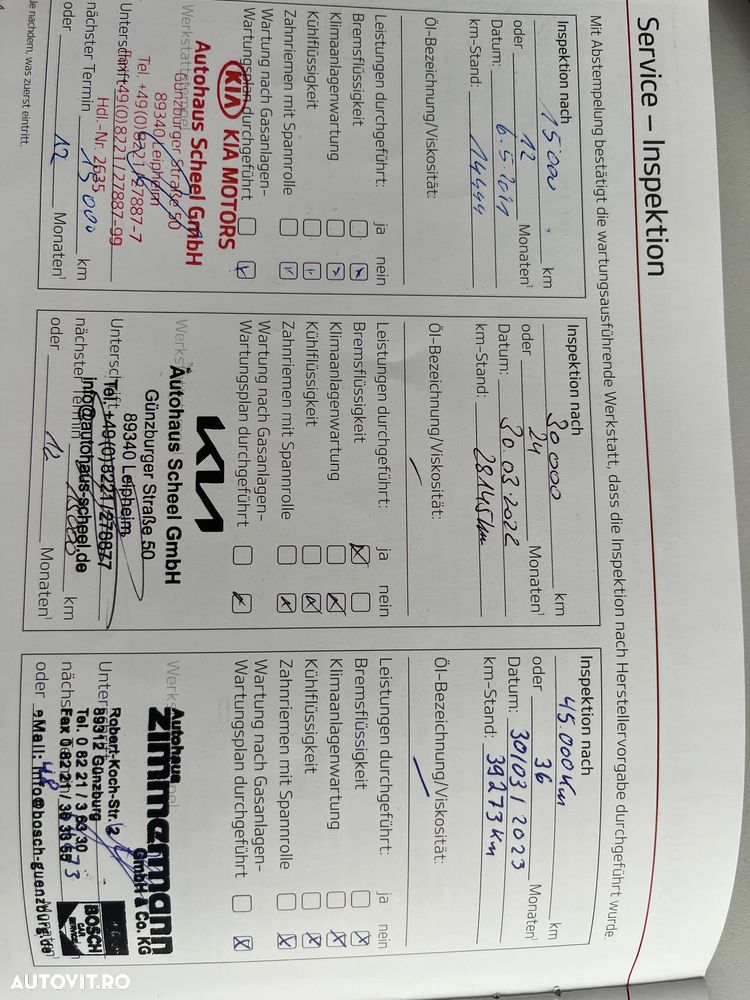 Service – Inspektion
Mit Abstempelung bestätigt die wartungsausführende Werkstatt, dass die Inspektion nach Herstellervorgabe durchgeführt wurde.
Inspektion nach
15000 km
oder 12 Monaten¹
Datum: 6.5.2021
km-Stand: 14444
Öl-Bezeichnung/Viskosität:
Leistungen durchgeführt: ja nein
Bremsflüssigkeit
Klimaanlagenwartung
Kühlflüssigkeit
Zahnriemen mit Spannrolle
Wartung nach Gasanlagen-
Wartungsplan durchgeführt
KIA KIA MOTORS
Autohaus Scheel GmbH
Günzburger Straße 50
89340 Leipheim
Tel. +49(0)8221/27887-7
Fax +49(0)8221/27887-99
Hdl.-Nr. 2635
Unterschrift
nächster Termin 15000 km
oder 12 Monaten¹
Je nachdem, was zuerst eintritt.
Inspektion nach
30000 km
oder 24 Monaten¹
Datum: 30.03.2022
km-Stand: 28145km
Öl-Bezeichnung/Viskosität:
Leistungen durchgeführt: ja nein
Bremsflüssigkeit
Klimaanlagenwartung
Kühlflüssigkeit
Zahnriemen mit Spannrolle
Wartung nach Gasanlagen-
Wartungsplan durchgeführt
KIA
Autohaus Scheel GmbH
Günzburger Straße 50
89340 Leipheim
Tel. +49(0)8221/278877
info@autohaus-scheel.de
Unterschrift
nächster Termin 15000 km
oder 12 Monaten¹
Inspektion nach
45000 km km
oder 36 Monaten¹
Datum: 30/03/2023
km-Stand: 39273 km
Öl-Bezeichnung/Viskosität:
Leistungen durchgeführt: ja nein
Bremsflüssigkeit
Klimaanlagenwartung
Kühlflüssigkeit
Zahnriemen mit Spannrolle
Wartung nach Gasanlagen-
Wartungsplan durchgeführt
Autohaus
Zimmermann
GmbH & Co. KG
Robert-Koch-Str. 2
89312 Günzburg
Tel. 0 82 21 / 3 63 30
eMail: info@bosch-guenzburg.de
BOSCH
CAR
SERVICE
oder 48
AUTOVIT.RO